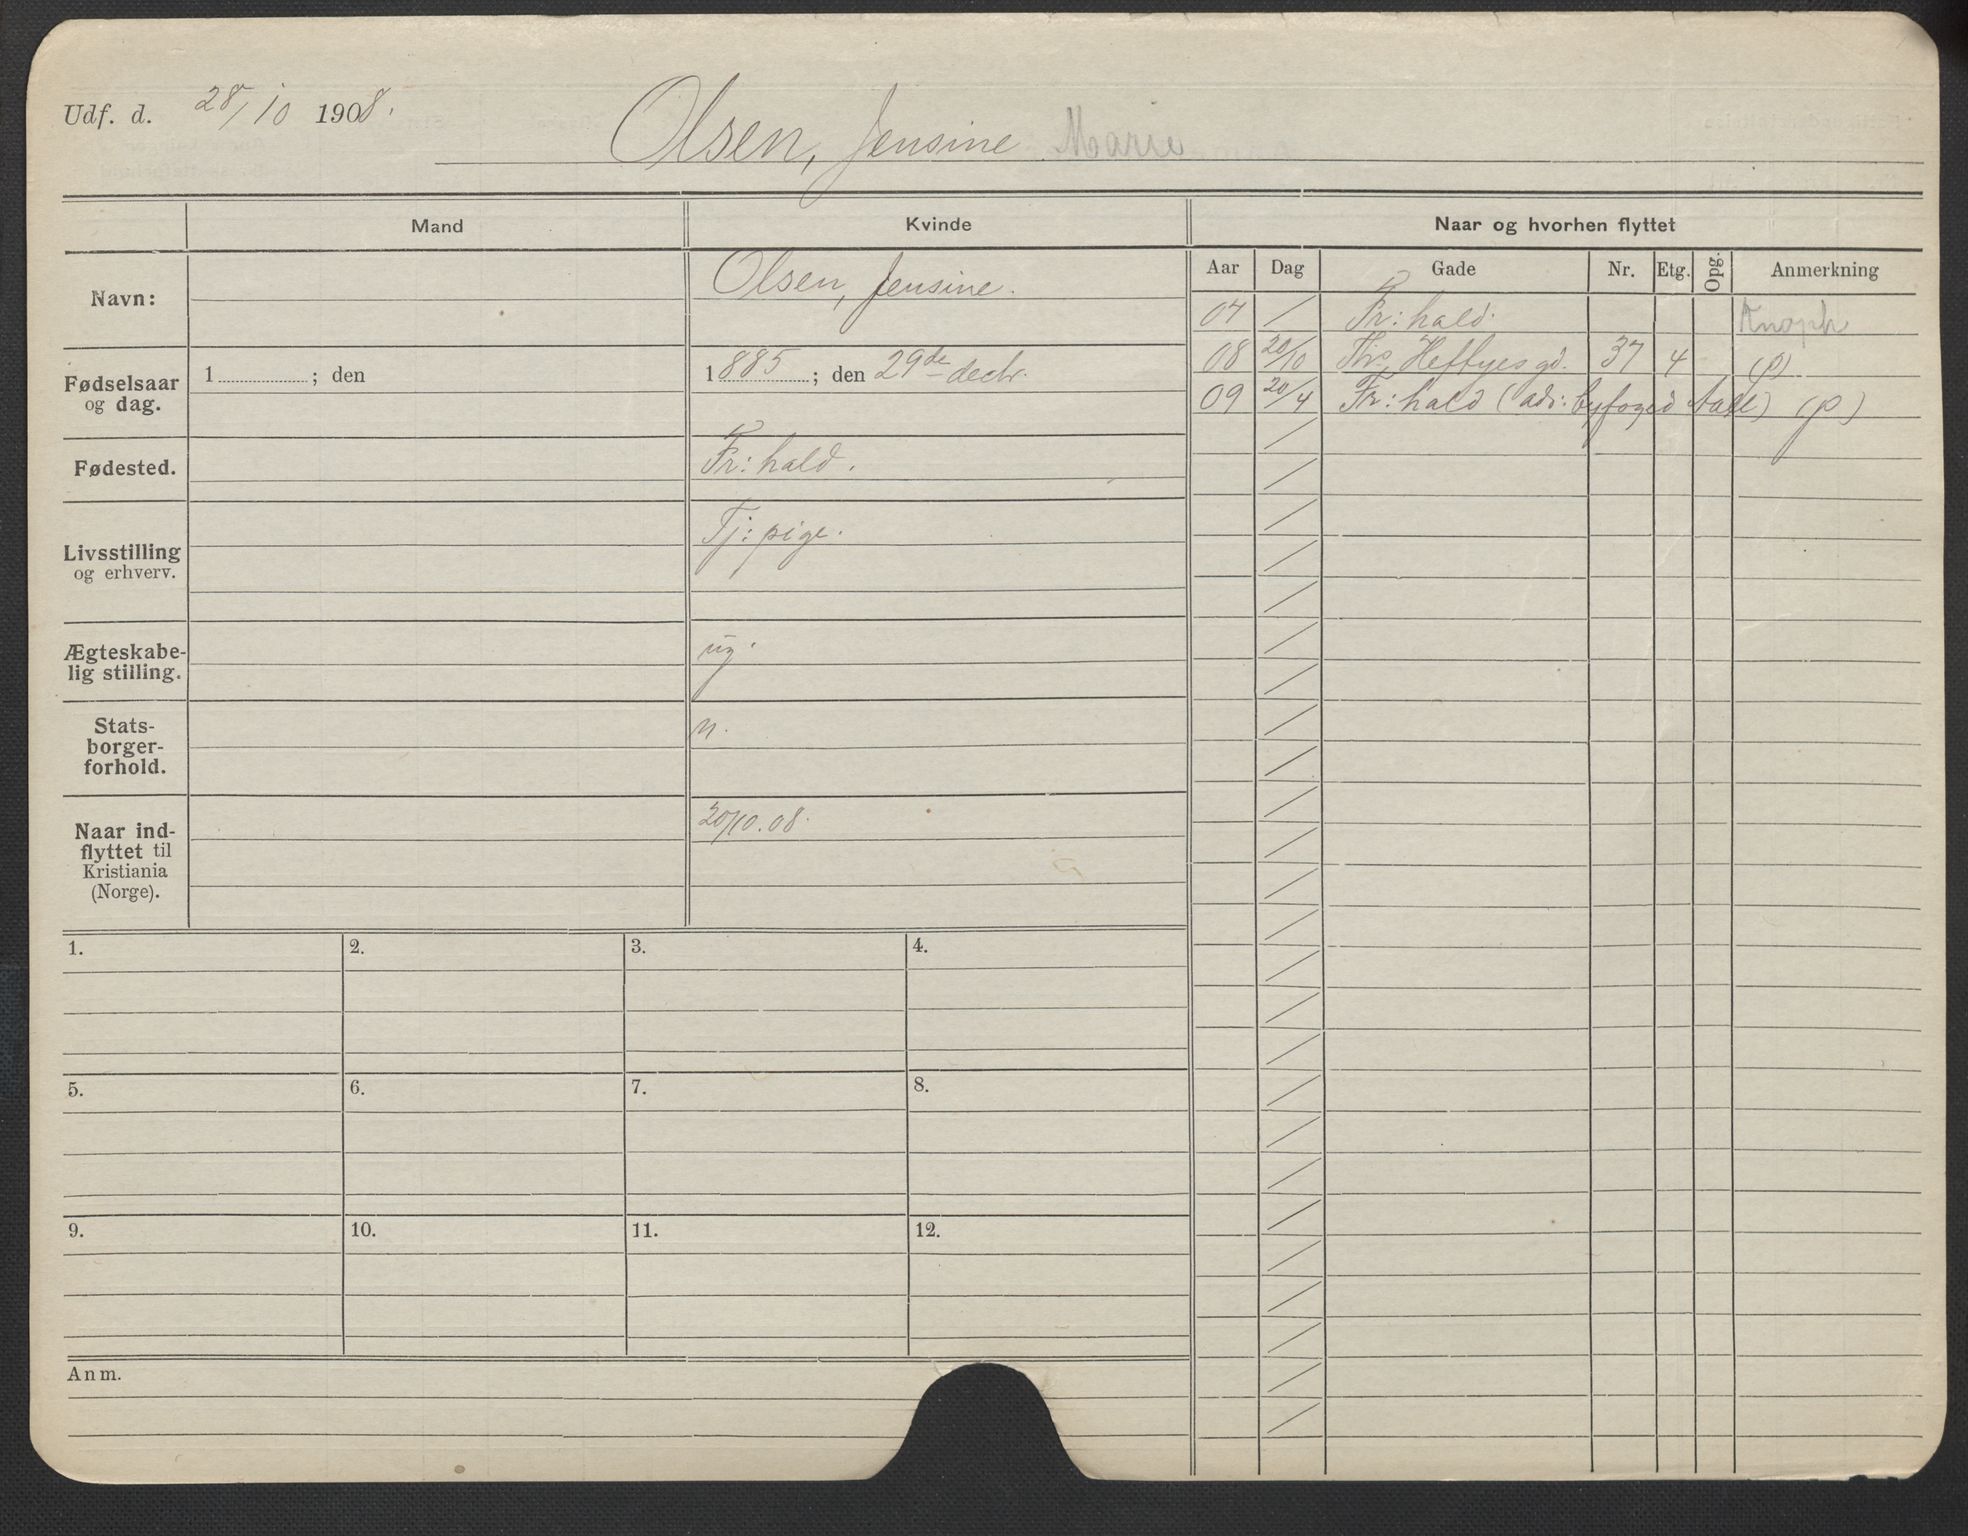 Udf. d. 28/10 1908.
Olsen, Jensine Marie
Mand Kvinde Naar og hvorhen flyttet
Navn: Olsen, Jensine.
Fødselsaar og dag. 1 ; den 1885 ; den 29de decbr.
Fødested. Fr:hald.
Livsstilling og erhverv. Tj:pige.
Ægteskabe-
lig stilling. ug.
Stats-
borger-
forhold. n.
Naar ind-
flyttet til
Kristiania
(Norge). 20/10.08.
Aar Dag Gade Nr. Etg. Opg. Anmerkning
07 / Fr:hald. Knoph
08 20/10 Ths Heftyes gd. 37 4 (p)
09 20/4 Fr:hald (adr: byfoged Aall) (p)
1. 2. 3. 4.
5. 6. 7. 8.
9. 10. 11. 12.
Anm.